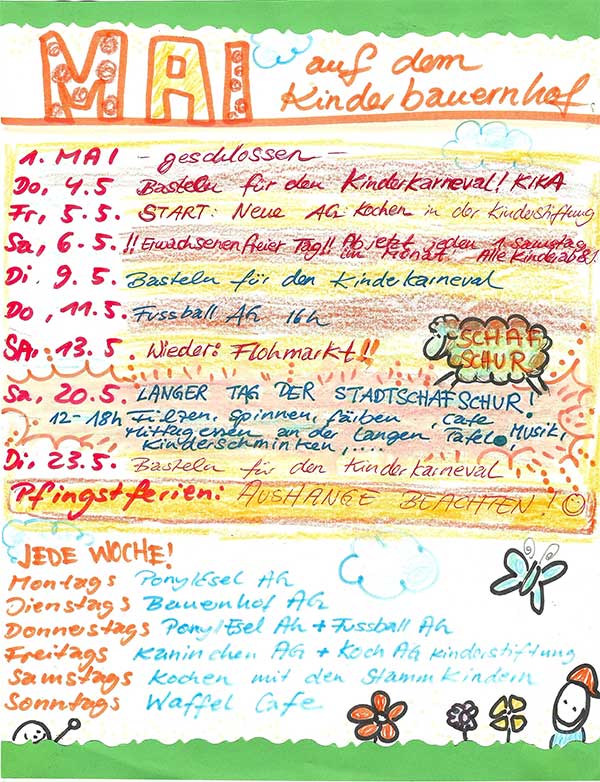 MAI
auf dem
Kinderbauernhof
1. MAI - geschlossen -
Do, 4.5 Basteln für den Kinderkarneval! KIKA
Fr, 5.5. START: Neue AG Kochen in der Kinderstiftung
Sa, 6.5. !! Erwachsenenfreier Tag!! Ab jetzt jeden 1. Samstag
im Monat! Alle Kinder ab 8!
Di. 9.5. Basteln für den Kinderkarneval
Do, 11.5. Fussball AG 16h
SA. 13.5. Wieder: Flohmarkt!!
SCHAF
SCHUR
Sa, 20.5. LANGER TAG DER STADTSCHAFSCHUR!
12-18h Filzen, Spinnen, färben, Cafe
Mittagessen an der langen Tafel, Musik,
Kinderschminken, ....
Di, 23.5. Basteln für den Kinderkarneval
Pfingstferien: AUSHÄNGE BEACHTEN!
JEDE WOCHE!
Montags Pony/Esel AG
Dienstags Bauernhof AG
Donnerstags Pony/Esel AG + Fussball AG
Freitags Kaninchen AG + Koch AG Kinderstiftung
Samstags Kochen mit den Stammkindern
Sonntags Waffel Cafe